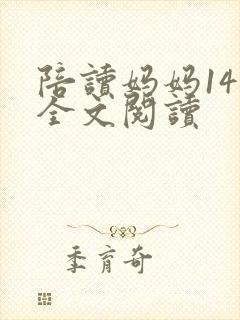 陪讀妈妈14
全文閱讀
季育奇